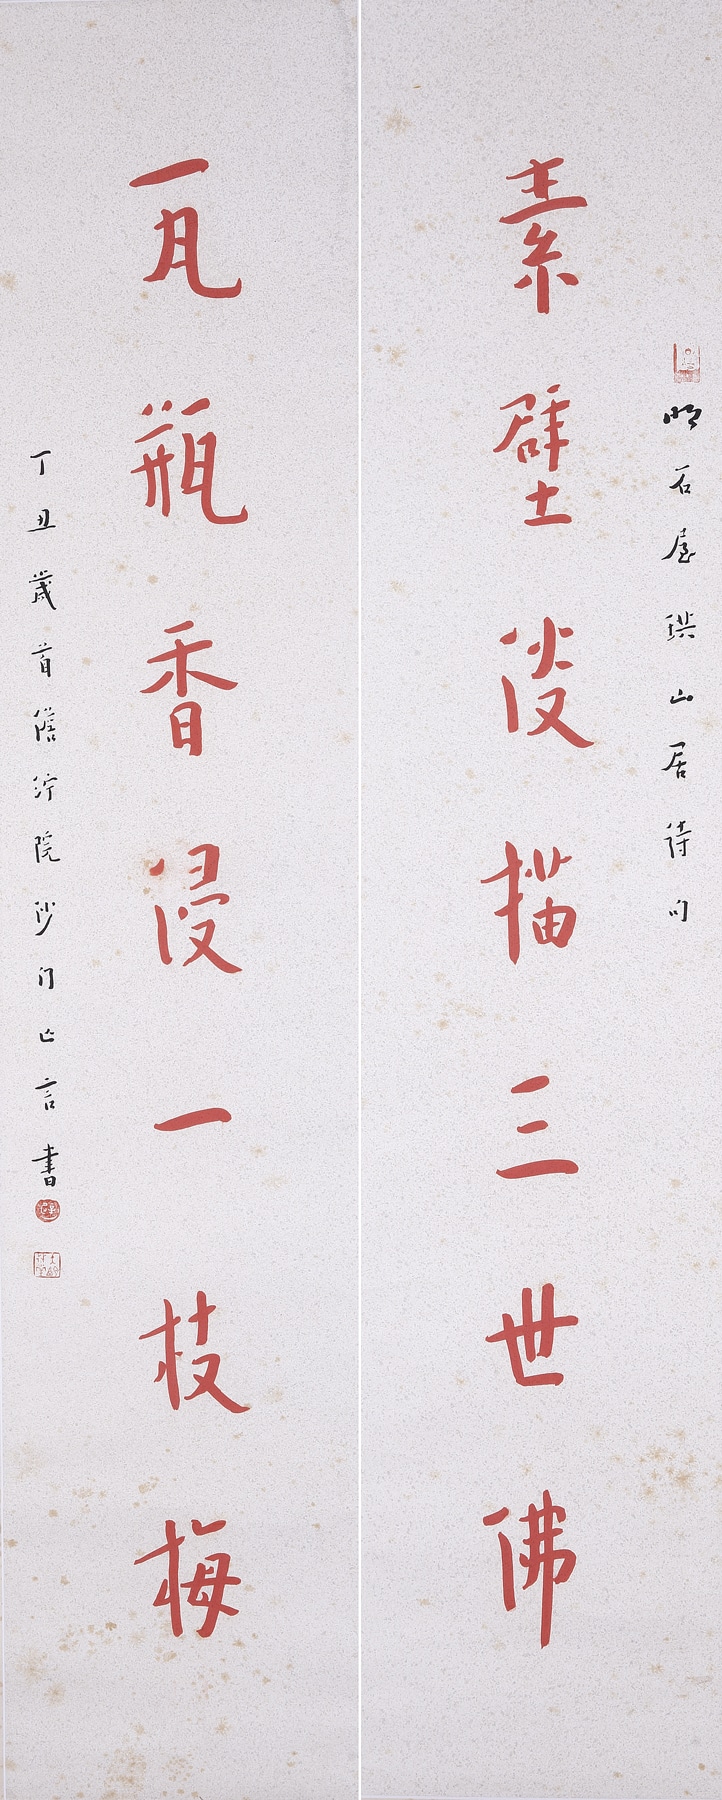 明石屋珙山居诗句
素壁淡描三世佛
瓦瓶香浸一枝梅
丁丑歲首儋泞院沙门亡言書